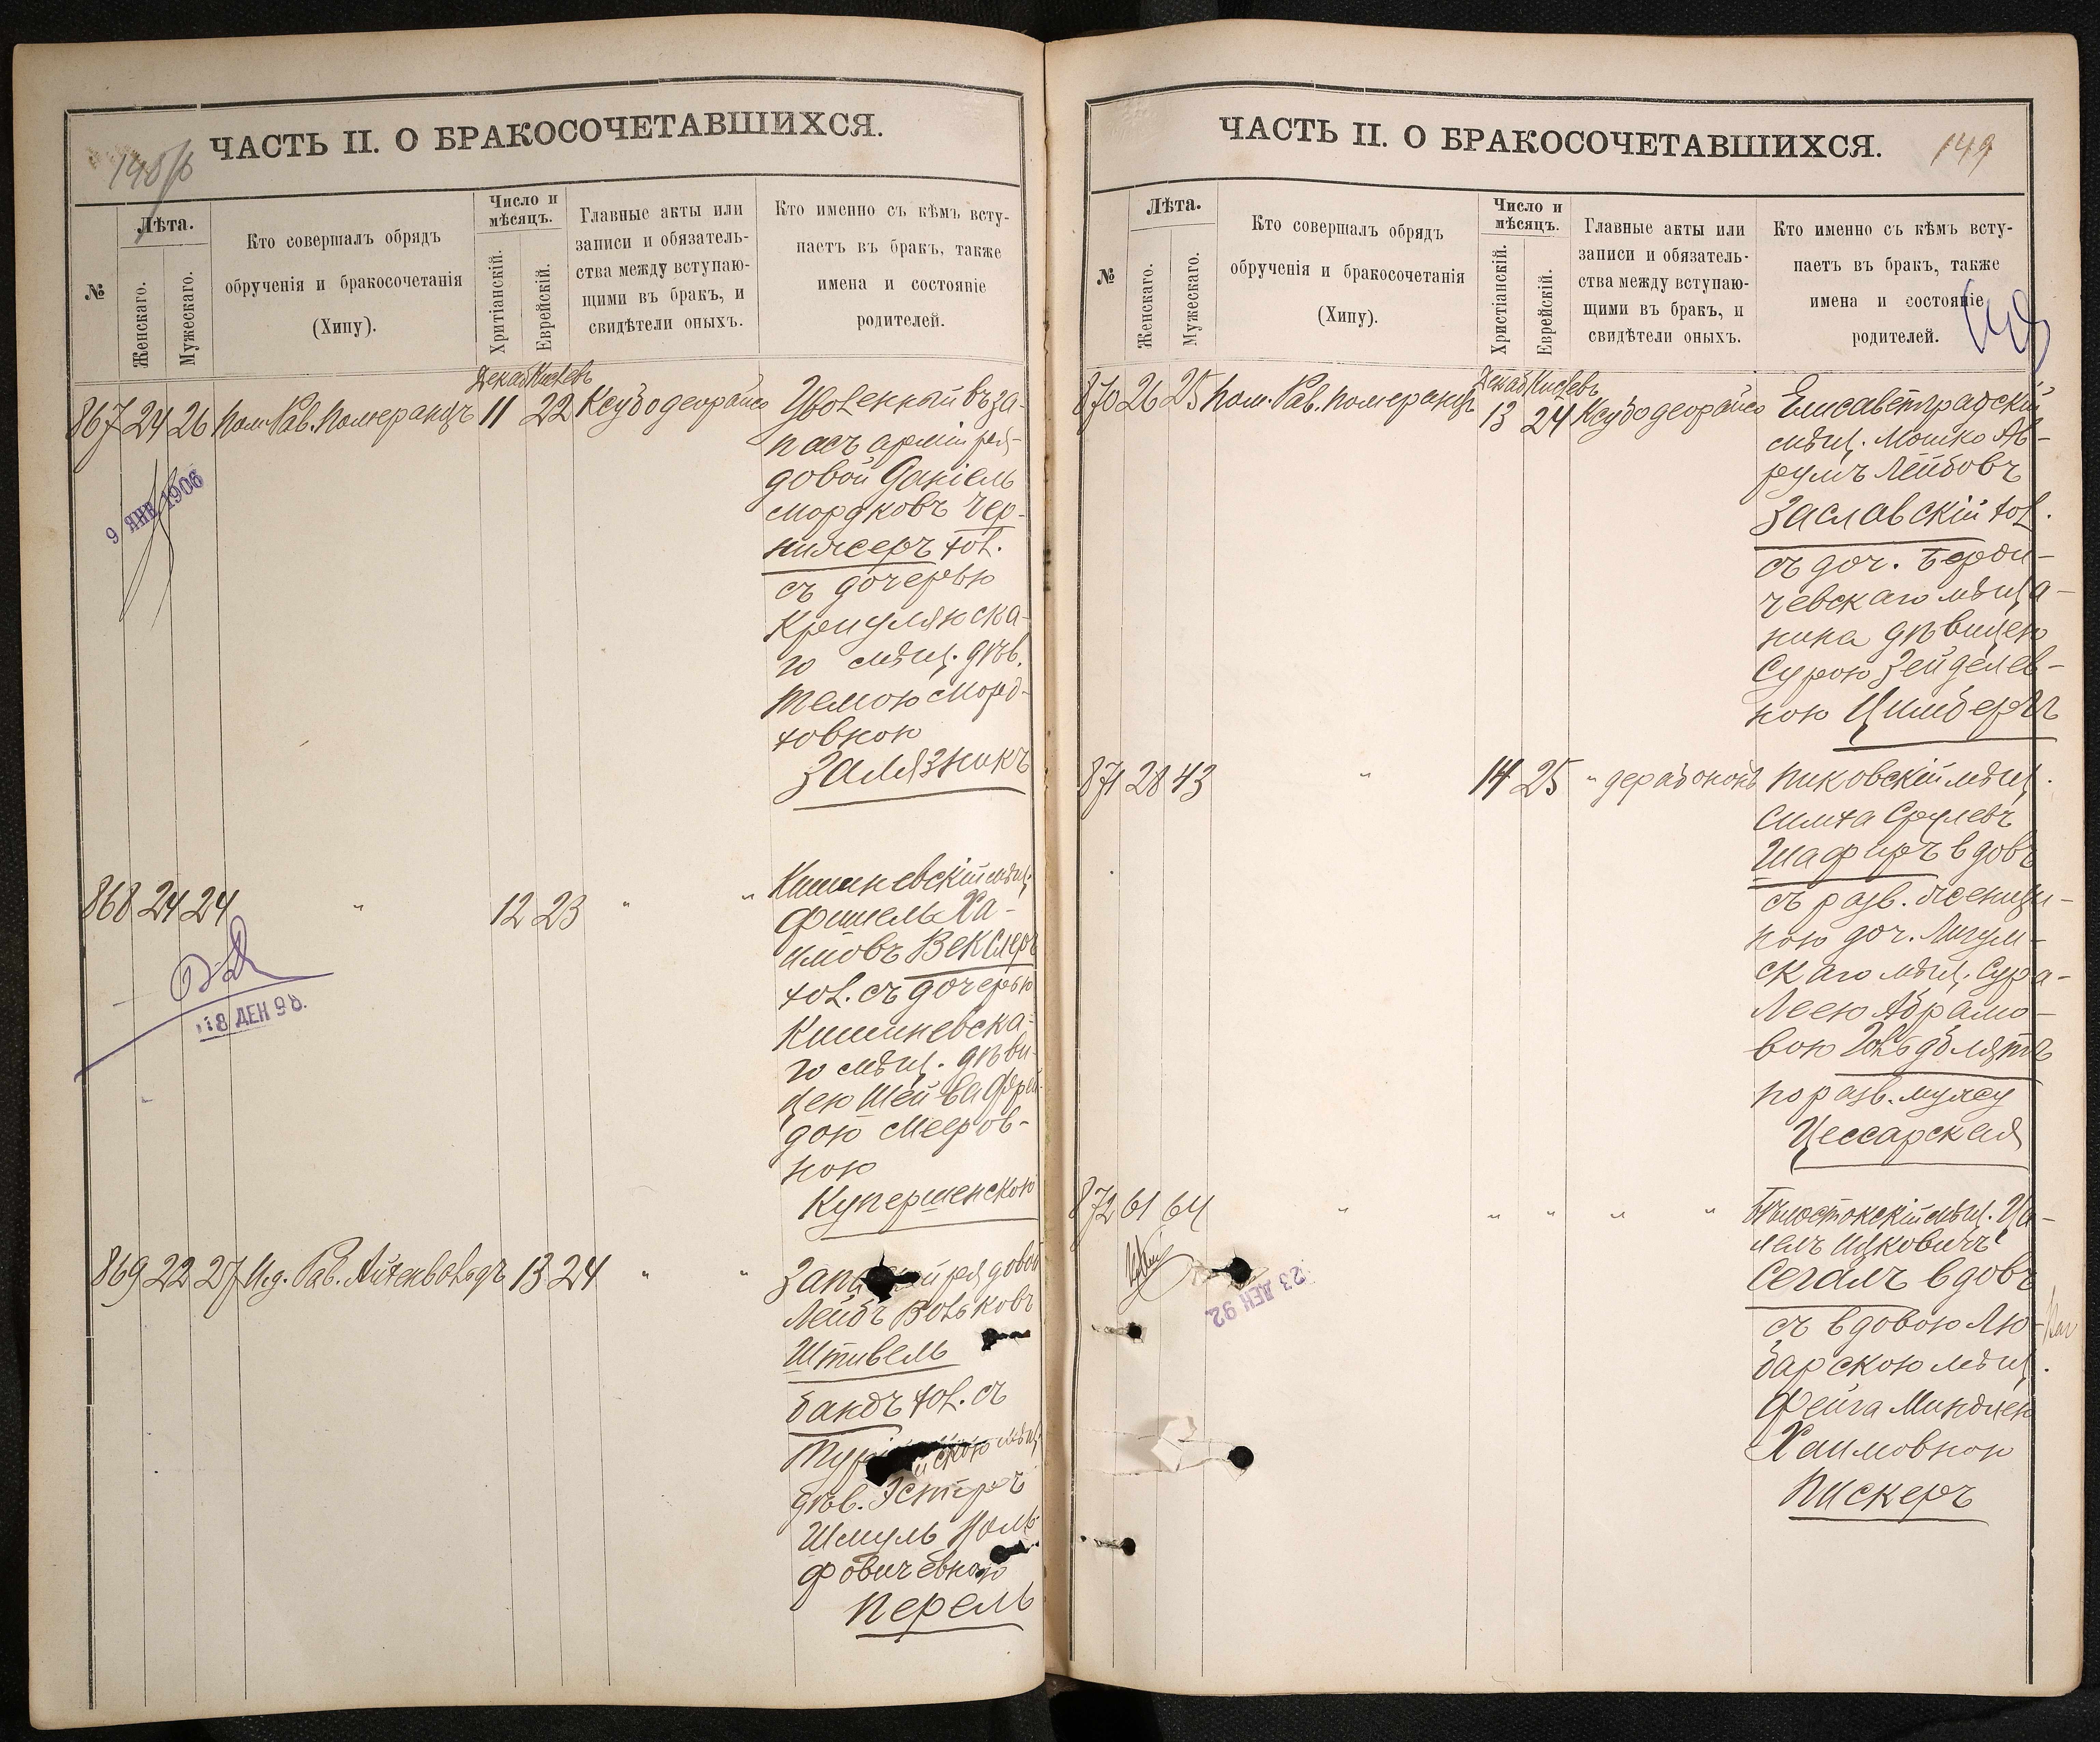 148об
ЧАСТЬ II. О БРАКОСОЧЕТАВШИХСЯ.
№
Лѣта.
Женскаго.
Мужескаго.
Кто совершалъ обрядъ
обрученія и бракосочетанія
(Хипу).
Число и
мѣсяцъ.
Хритіанскій.
Еврейскій.
Главные акты или
записи и обязатель-
ства между вступаю-
щими въ бракъ, и
свидѣтели оныхъ.
Кто именно съ кѣмъ всту-
паетъ въ бракъ, также
имена и состояніе
родителей.
Декаб Кислевъ
867 24 26 Пом. Рав. Померанцъ 11 22 Ксубодеорайсо
Уволенный въ за-
пасъ арміи ря-
довой Даніель
Мордковъ Чер-
няхеръ хол.
съ дочерью
Криулянска-
го мѣщ. дѣв.
Темою Морд-
ховною
Замязнокъ
9 ЯНВ 1906
868 24 24 " 12 23 " "
Кишиневскій мѣщ.
Фишель Ха-
имовъ Векслеръ
хол. съ дочерью
Кишиневска-
го мѣщ. дѣви-
цею Шейва Фрей-
дою Мееров-
ною
Купершенскою
18 ДЕН 98.
869 22 27 И.д. Рав. Айхенвальдъ 13 24 " "
рядовой
Лейбъ Вольковъ
Штивель
бандъ хол. съ
дѣв. Эстеръ
Шмуль Воль
фовичевною
Перель
149
ЧАСТЬ II. О БРАКОСОЧЕТАВШИХСЯ.
№
Лѣта.
Женскаго.
Мужескаго.
Кто совершалъ обрядъ
обрученія и бракосочетанія
(Хипу).
Число и
мѣсяцъ.
Христіанскій.
Еврейскій.
Главные акты или
записи и обязатель-
ства между вступаю-
щими въ бракъ, и
свидѣтели оныхъ.
Кто именно съ кѣмъ всту-
паетъ въ бракъ, также
имена и состояніе
родителей.
Декаб Кислевъ
870 26 25 Пом. Рав. Померанцъ 13 24 Ксубодеорайсо
Елисаветградскій
мѣщ. Мошко Ав-
румъ Лейбовъ
Заславскій хол.
съ доч. Берди-
чевскаго мѣща-
нина дѣвицею
Сурою Зейделев-
ною Цимберъ
871 28 43 " 14 25 " дерабононъ
Пиковскій мѣщ.
Симха Срулевъ
Шафиръ вдовъ
съ разв. женщи-
ною доч. Лигум-
скаго мѣщ. Сура-
Леею Абрамо-
вою
по разв. мужу
Цессарская
872 61 64 " " " " "
Бѣлостокскій мѣщ. Ца-
лелъ Ицковичъ
Сегалъ вдовъ
съ вдовою Лю-
барскою мѣщ.
Фейга Миндлею
Хаимовною
Пискеръ
23 ДЕН 92